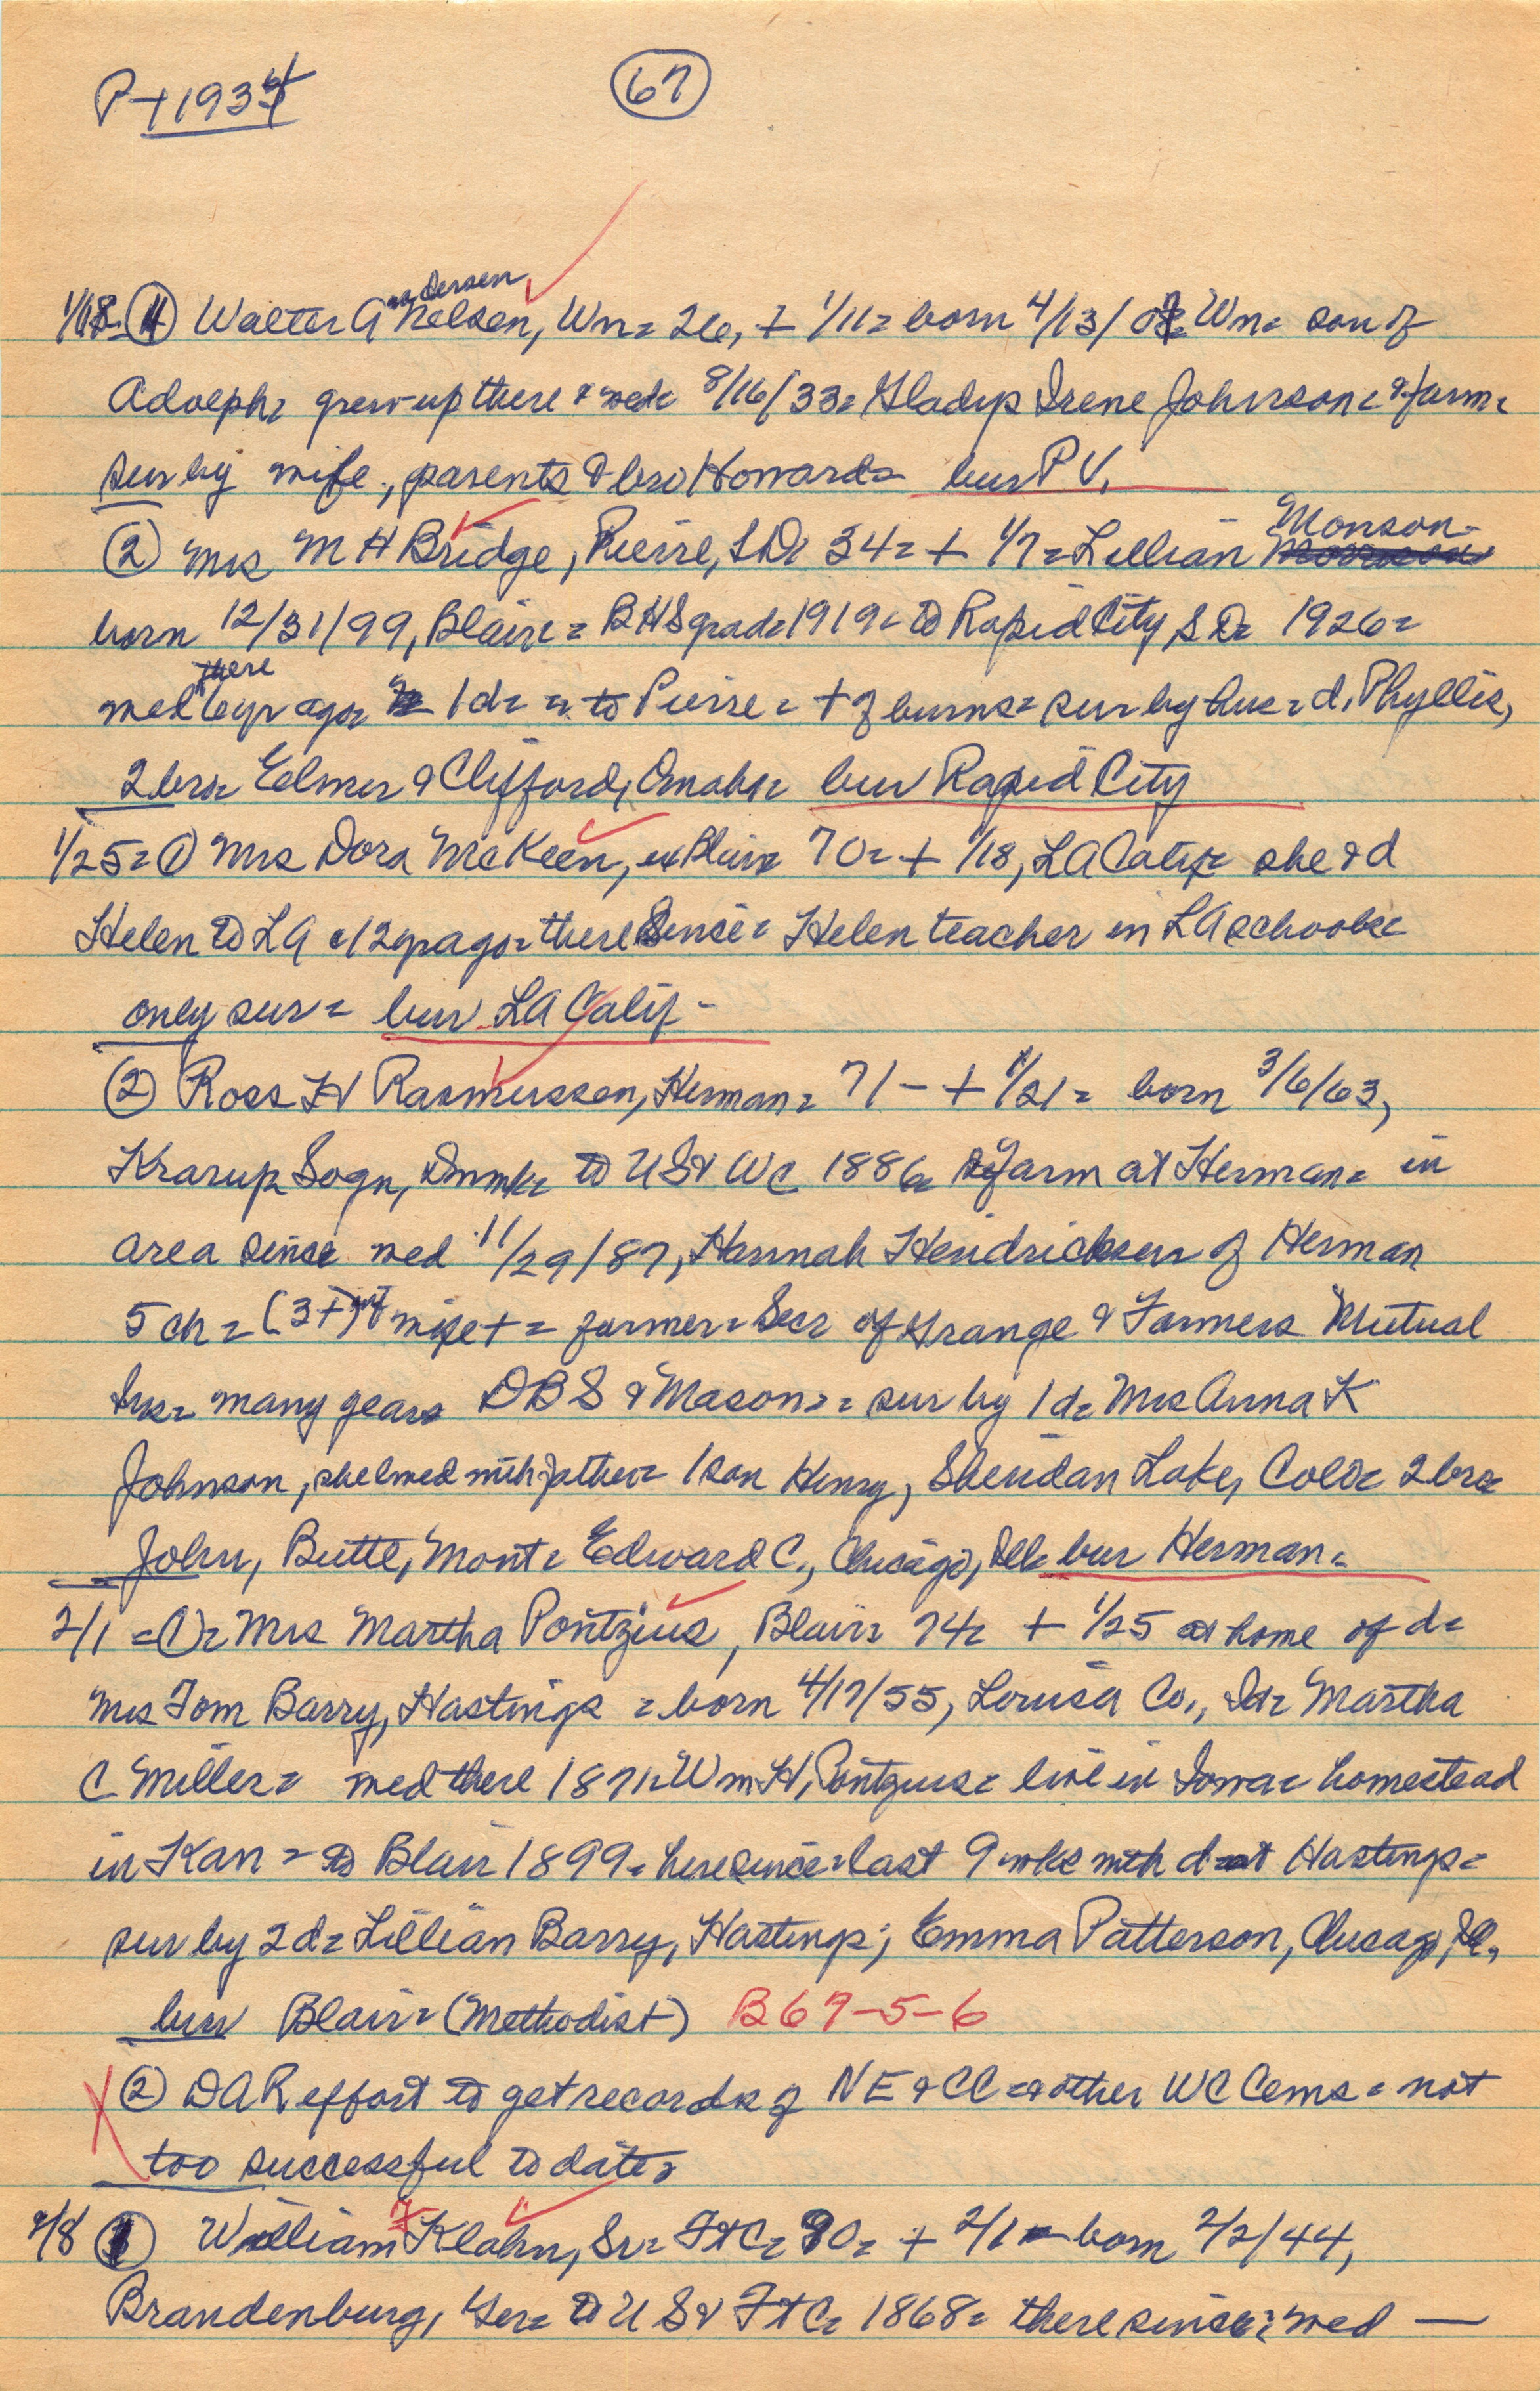 P+1934
67
1/18= ① Walter Andersen Nelsen, Wn= 26, + 1/11= born 4/13/07= Wn= son of
Adolph= grew up there & wed= 8/16/33= Gladys Irene Johnson= & farm=
sur by wife, parents & bro Howard= bur P V.
② Mrs M H Bridge, Pierre, S D= 34= + 1/7= Lillian Monson=
born 12/31/99, Blair= BHS grad= 1919= to Rapid City, S D= 1926=
wed there 6 yr ago= 1 d= = to Pierre= + of burns= sur by hus= d, Phyllis,
2 bro= Elmer & Clifford, Omaha= bur Rapid City
1/25= ① Mrs Dora McKeen, ex Blair= 70= + 1/18, LA Calif= she & d
Helen to LA 12 yr ago= there since= Helen teacher in LA schools=
only sur= bur LA Calif-
② Ross H Rasmussen, Herman= 71- + 1/21= born 3/6/63,
Krarup Sogn, Dnmk= to US & WC 1886= farm at Herman= in
area since wed 11/29/87, Hannah Hendricksen of Herman
5 ch= (3+) wife += farmer= Secr of Grange & Farmers Mutual
Ins= many years DBS & Mason= sur by 1 d= Mrs Anna K
Johnson, she lived with father= 1 son Henry, Sheridan Lake, Colo= 2 bro=
John, Butte, Mont= Edward C., Chicago, Ill= bur Herman=
2/1= ①= Mrs Martha Pontzius, Blair= 74= + 1/25 at home of d=
Mrs Tom Barry, Hastings= born 4/17/55, Louisa Co., Ia= Martha
C Miller= wed there 1871= Wm H, Pontzius= live in Iowa= homestead
in Kan= to Blair 1899= here since= last 9 wks with d at Hastings=
sur by 2 d= Lillian Barry, Hastings; Emma Patterson, Chicago, Ill,
bur Blair= (Methodist) B 67-5-6
② DAR effort to get records of NE & CC= & other WC Cems= not
too successful to date=
2/8 ① William F Klahn, Sr= FtC= 90= + 2/1= born 2/2/44,
Brandenburg, Ger= to US & FtC= 1868= there since= wed —